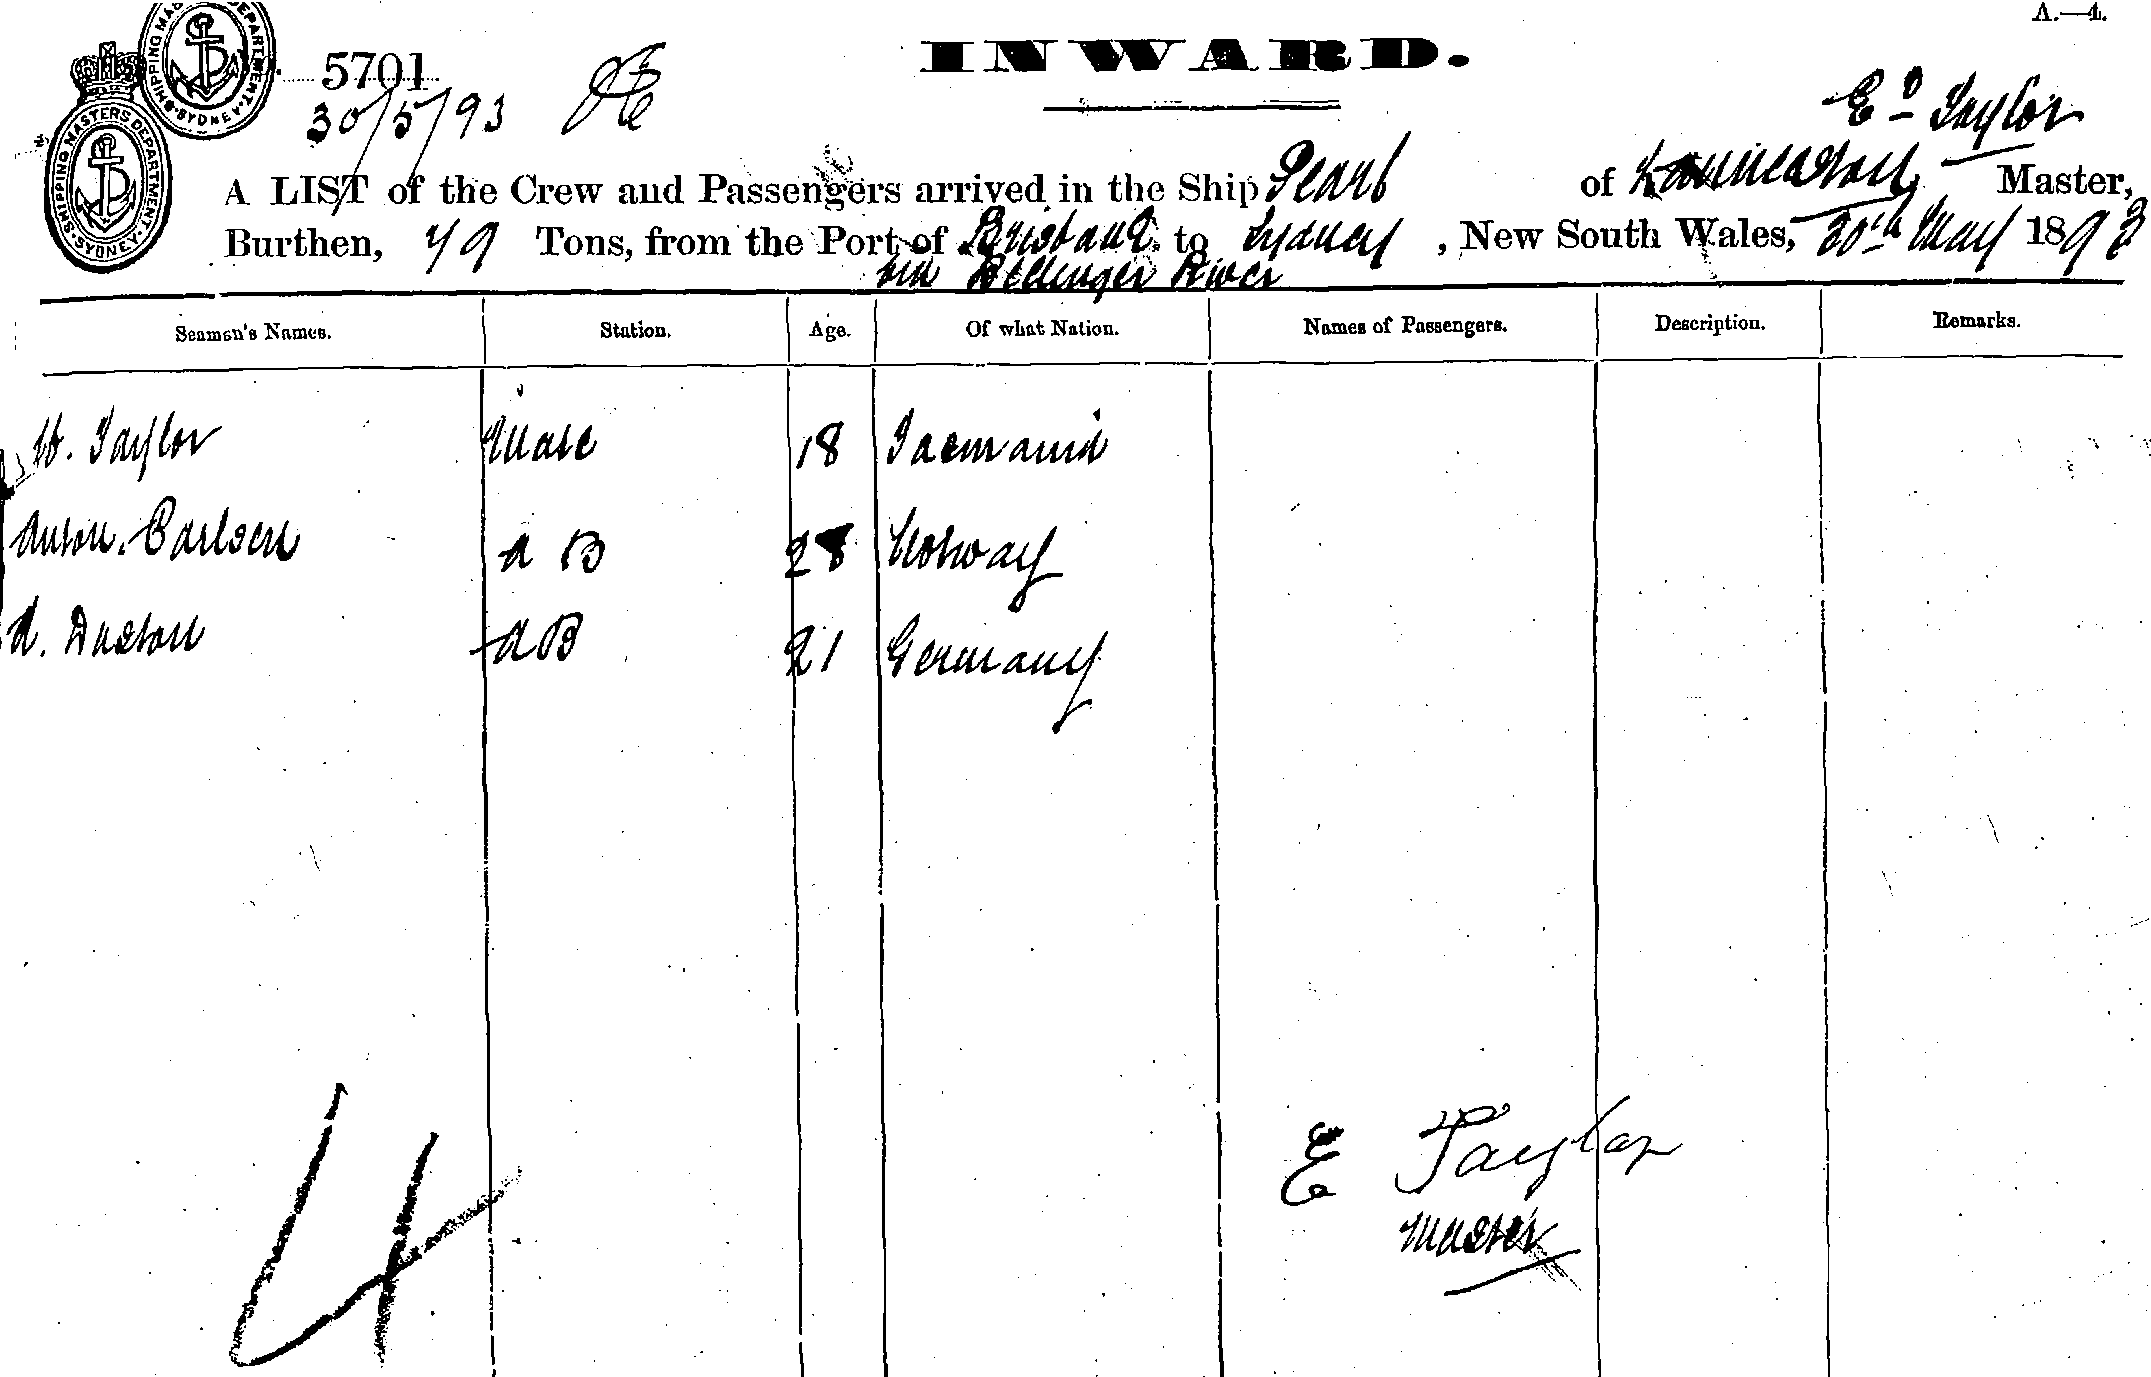 A.—4.
INWARD.
5701
30/5/93
Ed Taylor
A LIST of the Crew and Passengers arrived in the Ship Pearl of Launceston, Master,
Burthen, 79 Tons, from the Port of Brisbane to Sydney, New South Wales, 30th May 1893
via Bellinger River
Seamen's Names. Station. Age. Of what Nation. Names of Passengers. Description. Remarks.
W. Taylor Mate 18 Tasmania
Anton. Carlsen A B 28 Norway
A. Daston A B 21 Germany
4
E Taylor
Master
SHIPPING MASTERS DEPARTMENT. SYDNEY
SHIPPING MASTERS DEPARTMENT. SYDNEY